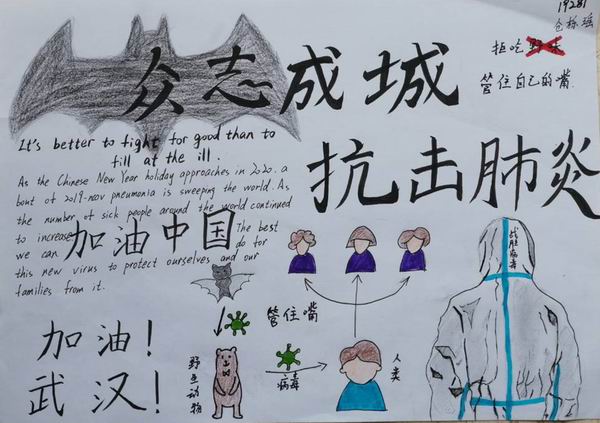 19281
仓栎瑶
拒吃野味
管住自己的嘴
众志成城
抗击肺炎
It's better to fight for good than to
fill at the ill.
As the Chinese New Year holiday approaches in 2020, a
bout of 2019-nov pneumonia is sweeping the world. As
the number of sick people around the world continued
to increase
The best
we can
do for
this new virus to protect ourselves and our
families from it.
加油中国
加油!
武汉!
管住嘴
野生动物
病毒
人类
战胜病毒